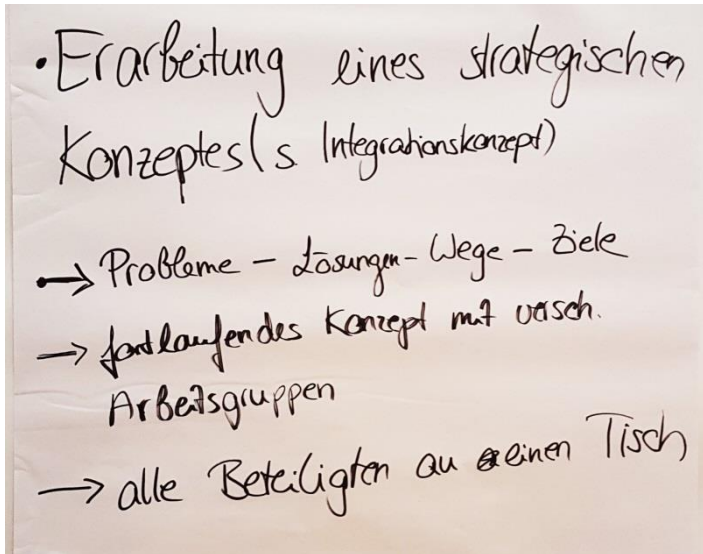 • Erarbeitung eines strategischen
Konzeptes (s. Integrationskonzept)
→ Probleme - Lösungen - Wege - Ziele
→ fortlaufendes Konzept mit versch.
Arbeitsgruppen
→ alle Beteiligten an einen Tisch